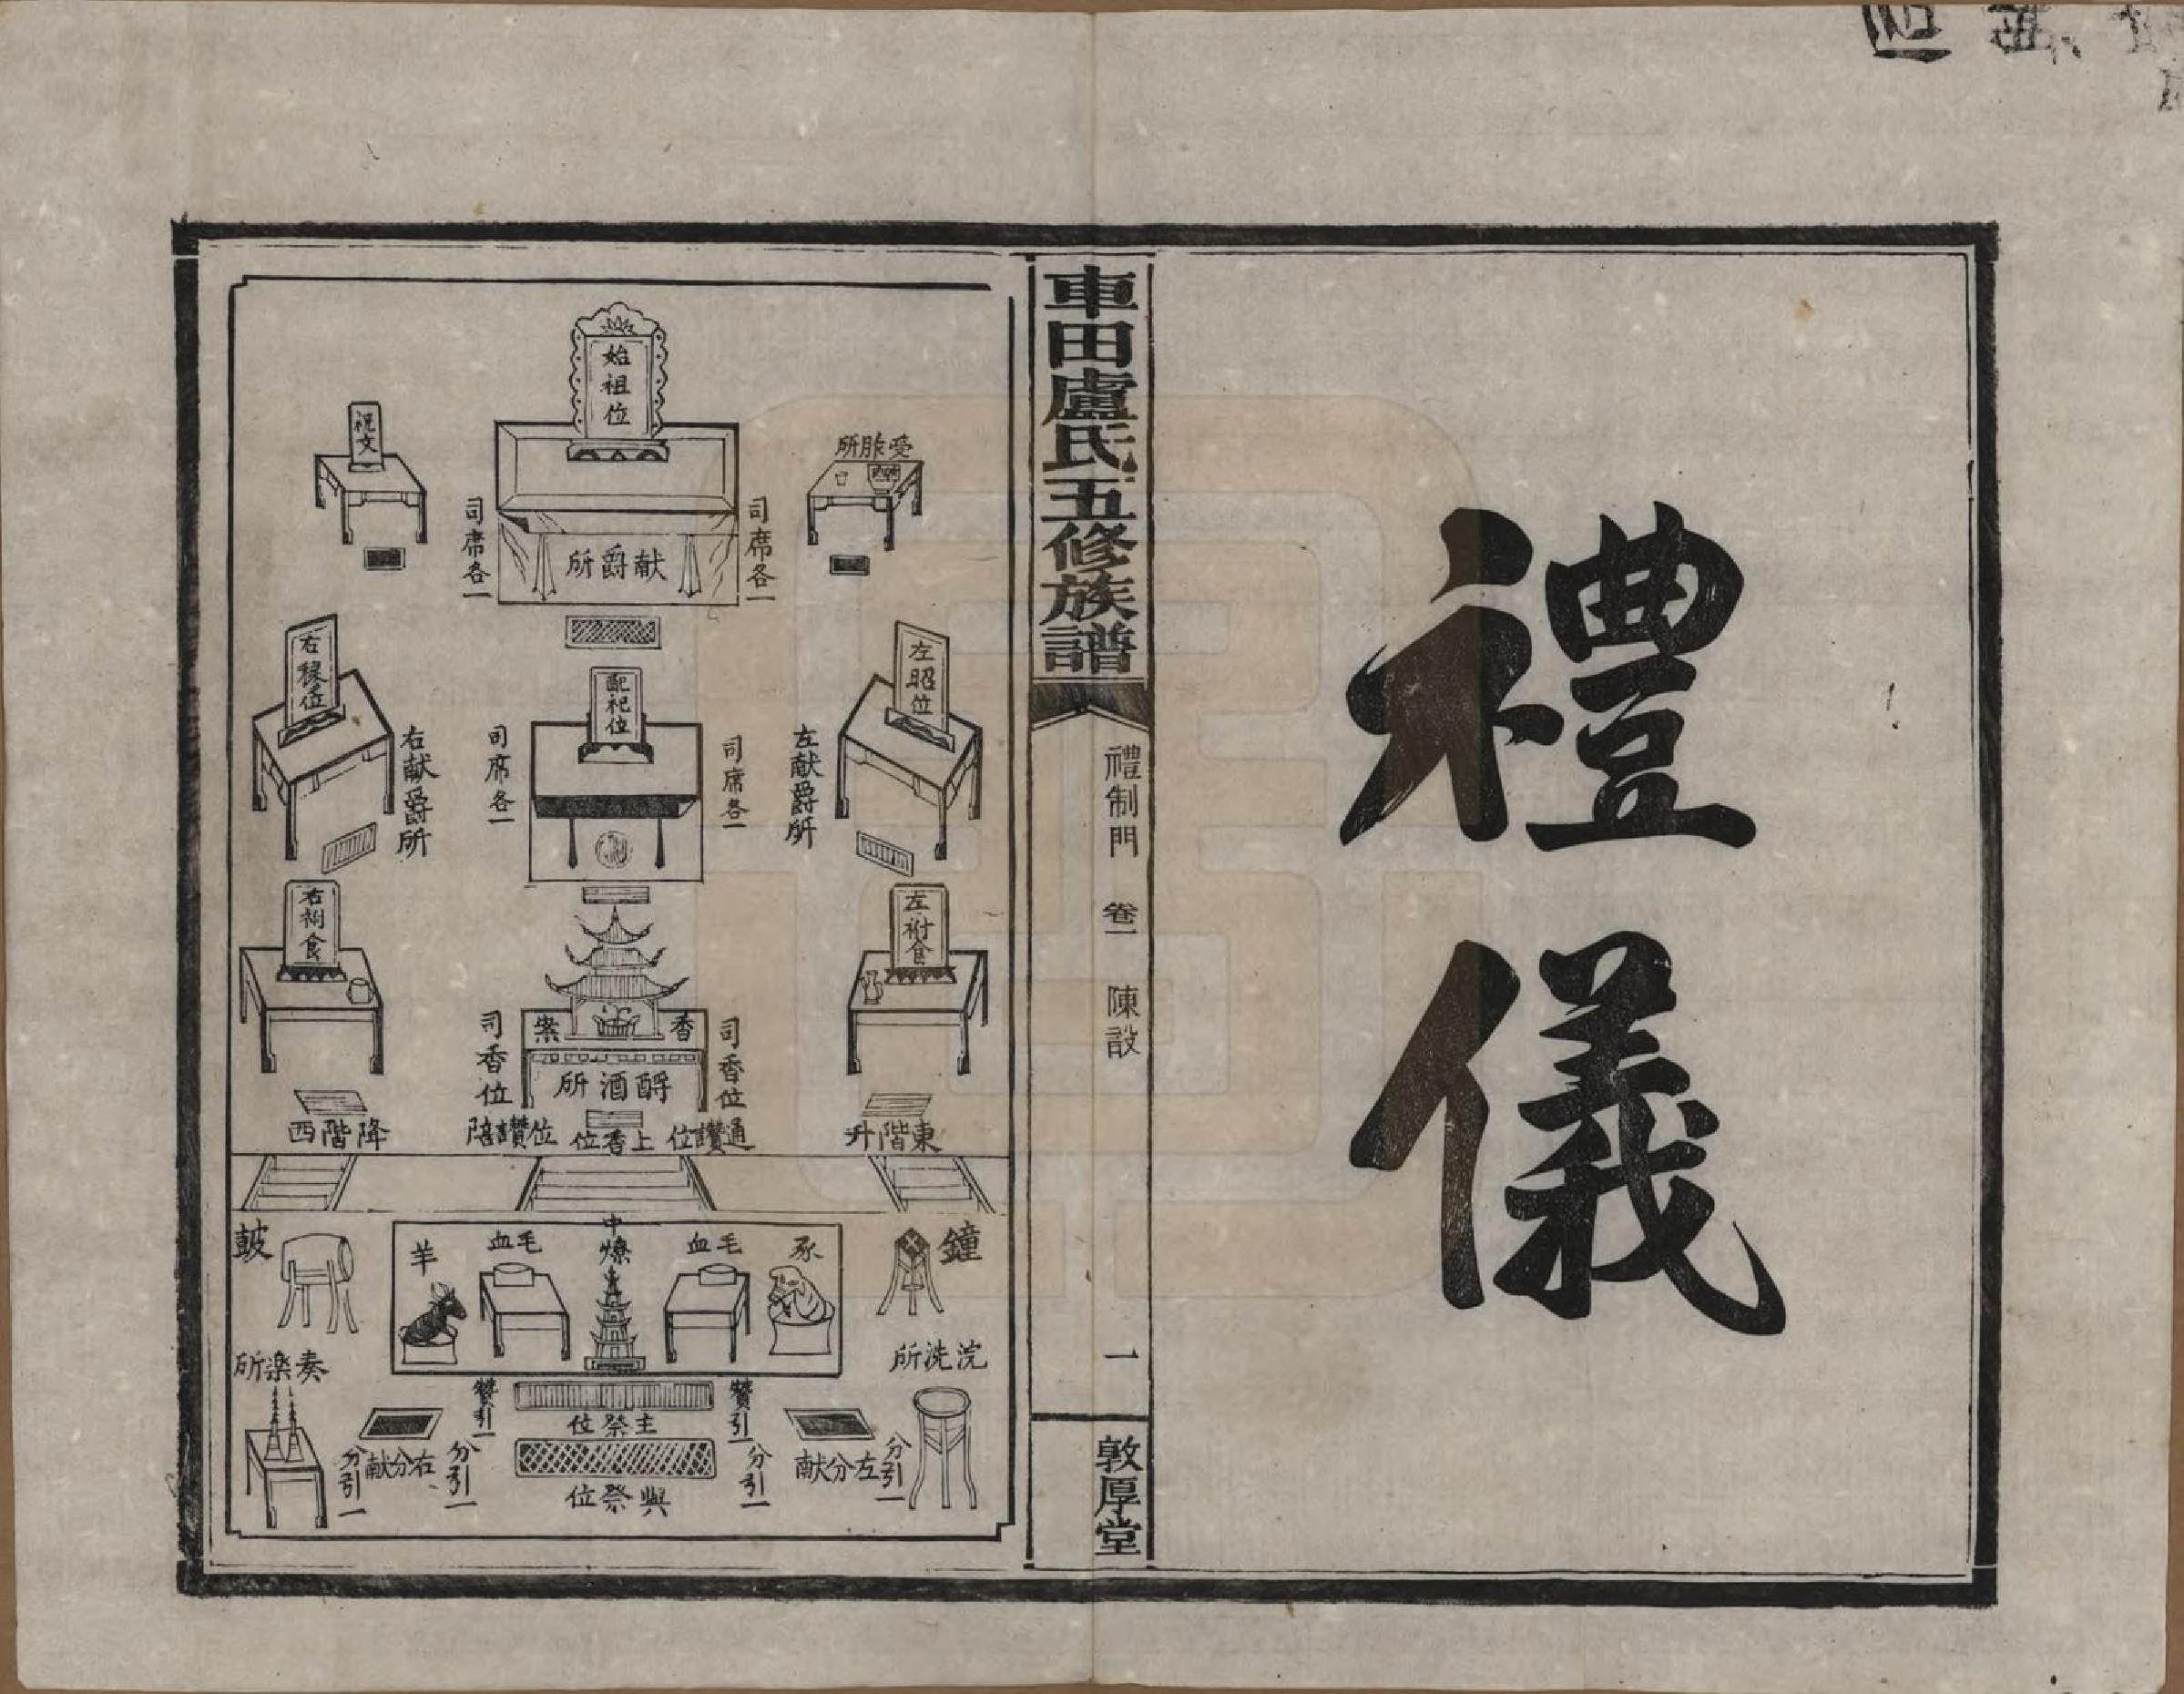 禮儀
車田盧氏五修族譜
禮制門　卷一　陳設
一
敦厚堂
始祖位
祝文
受胙所
司席各一
司席各一
献爵所
左昭位
右穆位
配祀位
左献爵所
司席各一
司席各一
右献爵所
左祔食
右祔食
香案
司香位
司香位
酹酒所
東階升
通讚位
上香位
陪讚位
降階西
鐘
豕
毛血
中燎
毛血
羊
鼓
盥洗所
奏楽所
贊引一
贊引一
主祭位
分引一
左分献
分引一
分引一
右分献
分引一
與祭位